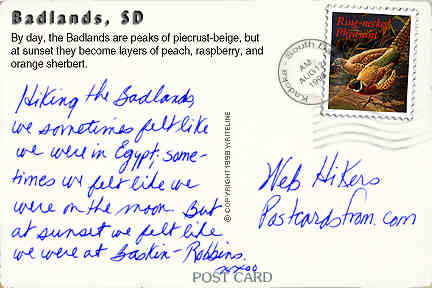 Badlands, SD
By day, the Badlands are peaks of piecrust-beige, but
at sunset they become layers of peach, raspberry, and
orange sherbert.
Hiking the Badlands,
we sometimes felt like
we were in Egypt; some-
times we felt like we
were on the moon. But
at sunset we felt like
we were at Baskin-Robbins.
xxoo
© COPYRIGHT 1998 WRITELINE
Ring-necked
Pheasant
Kadoka - South
AM
AUG
Web Hikers
Postcardsfrom.com
POST CARD